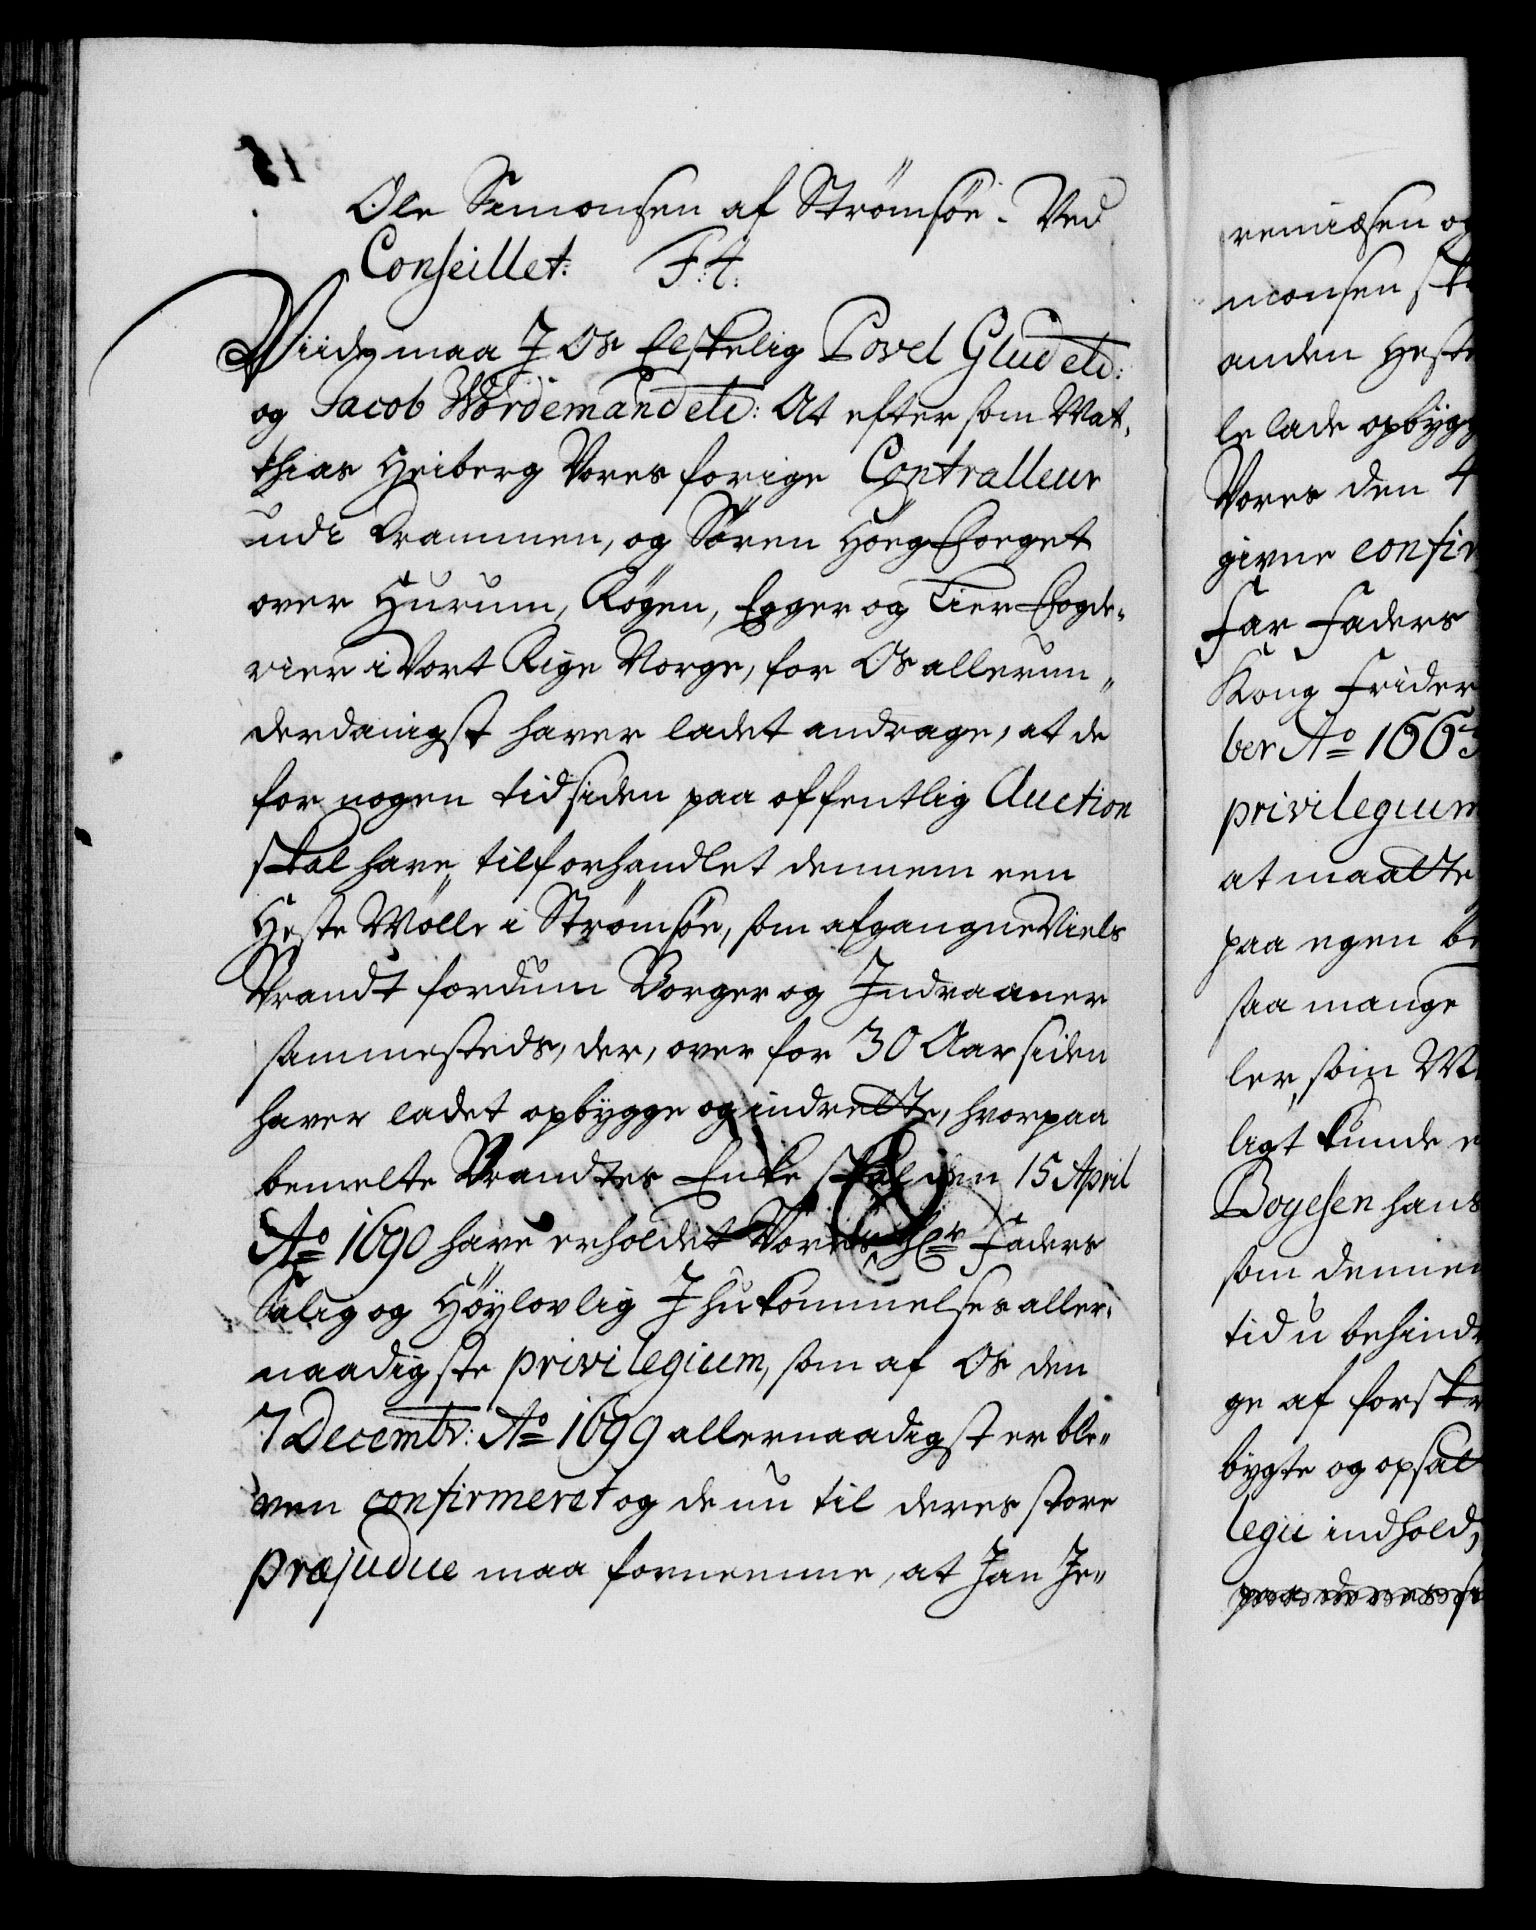 Ole Simonsen af Strømsøe. Ved
Conseillet. F:4:
Viide maa I Os Elskelig Povel Glud etc:
og Jacob Wørdemand etc: At efter som Mat,
thias Heiberg Vores forige Contralleur
udi Drammen, og Søren Høeg Foeget
over Hurum, Røgen, Egger og Lier Fogde,
rier i Vort Rige Norge, for Os allerun,,
derdanigst haver ladet andrage, at de
for nogen tid siden paa offentlig Auction
skal have tilforhandlet dennem een
Heste Mølle i Strømsøe, som afgangne Niels
Brandt fordum Borger og Indvaaner
sammesteds, der, over for 30 Aar siden
haver ladet opbygge og indrette, hvorpaa
bemelte Brandtes Enke skal den 15 April
Ao 1690 have erholdet Vores hEr Faders
Salig og Høylovlig Ihukommelses aller,
naadigste privilegium, som af Os den
7 Decembr: Ao 1699 allernaadigst er ble,,
ven confirmeret og de nu til deres store
præjudice maa fornemme, at Jan Je,,
remiæsen og
monsen
anden Heste
le lade opbygg
Vores den 4
givne confir
Far Faders
Kong Frider
ber Ao 1663
privilegium
at maatte
paa egen be
saa mange
ler, som
ligt kunde
Boyesen hans
som dennem
tid u behindr
ge af forskr
bygte og opsat
legii indhold,